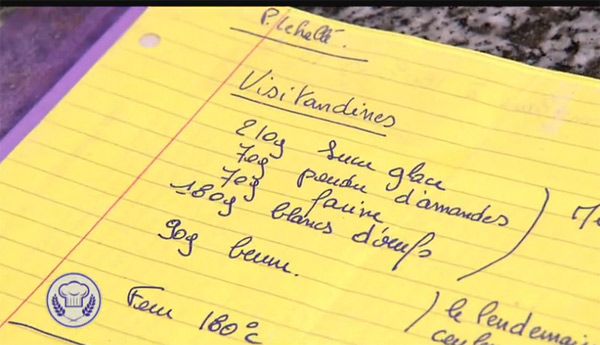 P. Lehallé.
Visitandines
210g Sucre glace
70g poudre d'amandes
70g farine
180g blancs d'œufs
90g beurre.
Four 180°c
le lendemain